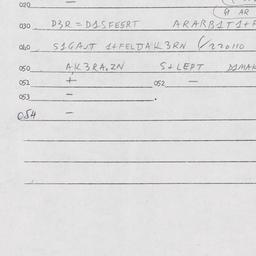 020 —
G AR
030 D3R = D1SFESRT ARARB1T1+F
040 S1GAST 1+FELDAK3RN (/220110
050 AK3RA.ZN S+LEPT D1MAK
051 + 052 —
053 — .
054 —